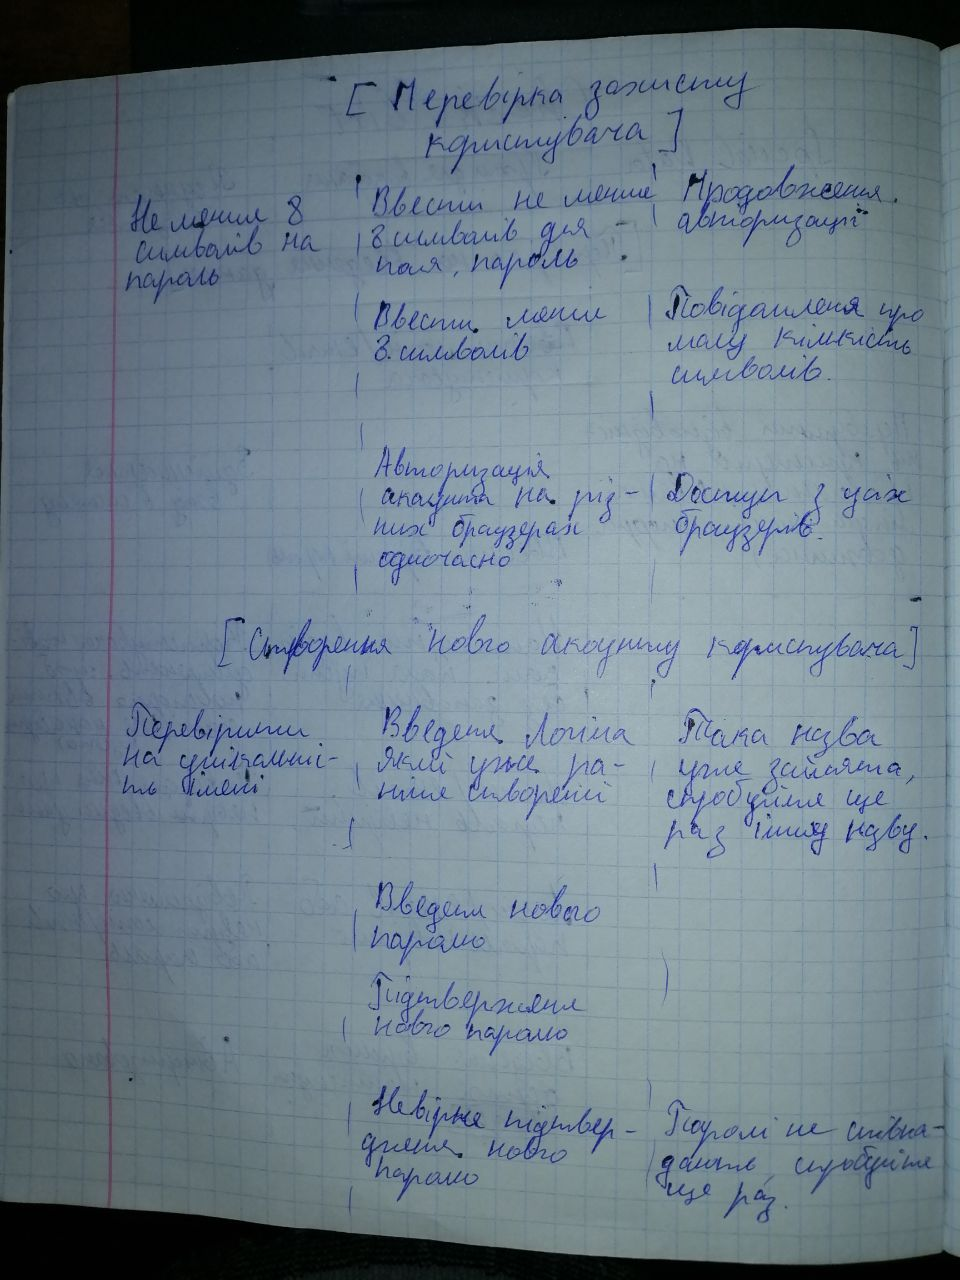 [ Перевірка захисту
користувача ]
Не менше 8
символів на
пароль
Ввести не менше
8 символів для
поля, пароль
Продовження
авторизації
Ввести менше
8 символів
Повідомленя про
малу кількість
символів.
Авторизація
акаунта на різ-
них браузерах
одночасно
Доступ з усіх
браузерів.
[Створення нового акаунту користувача]
Перевірити
на унікальні-
ть імені
Введеня Логіна
який уже ра-
ніше створений
Така назва
уже зайнята,
спробуйте ще
раз іншу назву.
Введеня нового
паролю
Підтверженя
нового паролю
Невірне підтвер-
дженя нового
паролю
Паролі не співпа-
дають, спробуйте
ще раз.